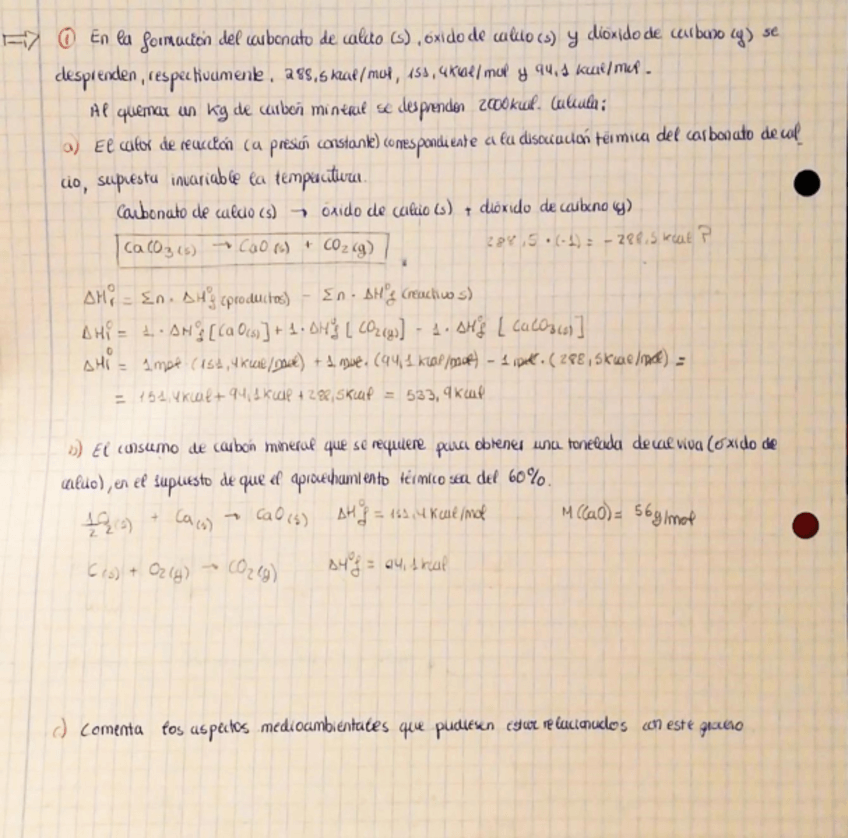 ① En la formación del carbonato de calcio (s), óxido de calcio (s) y dióxido de carbono (g) se
desprenden, respectivamente, 288,5 kcal/mol, 151,4 kcal/mol y 94,1 kcal/mol.
Al quemar un kg de carbón mineral se desprenden 2000 kcal. Calcula:
a) El calor de reacción (a presión constante) correspondiente a la disociación térmica del carbonato de cal
cio, supuesta invariable la temperatura.
Carbonato de calcio (s) → óxido de calcio (s) + dióxido de carbono (g)
CaCO₃(s) → CaO(s) + CO₂(g)
288,5 · (-1) = -288,5 kcal ?
ΔHr° = Σn · ΔHf° (productos) - Σn · ΔHf° (reactivos)
ΔHr° = 1 · ΔHf° [CaO(s)] + 1 · ΔHf° [CO₂(g)] - 1 · ΔHf° [CaCO₃(s)]
ΔHr° = 1 mol · (151,4 kcal/mol) + 1 mol · (94,1 kcal/mol) - 1 mol · (288,5 kcal/mol) =
= 151,4 kcal + 94,1 kcal + 288,5 kcal = 533,9 kcal
b) El consumo de carbón mineral que se requiere para obtener una tonelada de cal viva (óxido de
calcio), en el supuesto de que el aprovechamiento térmico sea del 60%.
1/2 O₂(s) + Ca(s) → CaO(s) ΔHf° = 151,4 kcal/mol M(CaO) = 56 g/mol
C(s) + O₂(g) → CO₂(g) ΔHf° = 94,1 kcal
c) Comenta los aspectos medioambientales que pudiesen estar relacionados con este proceso